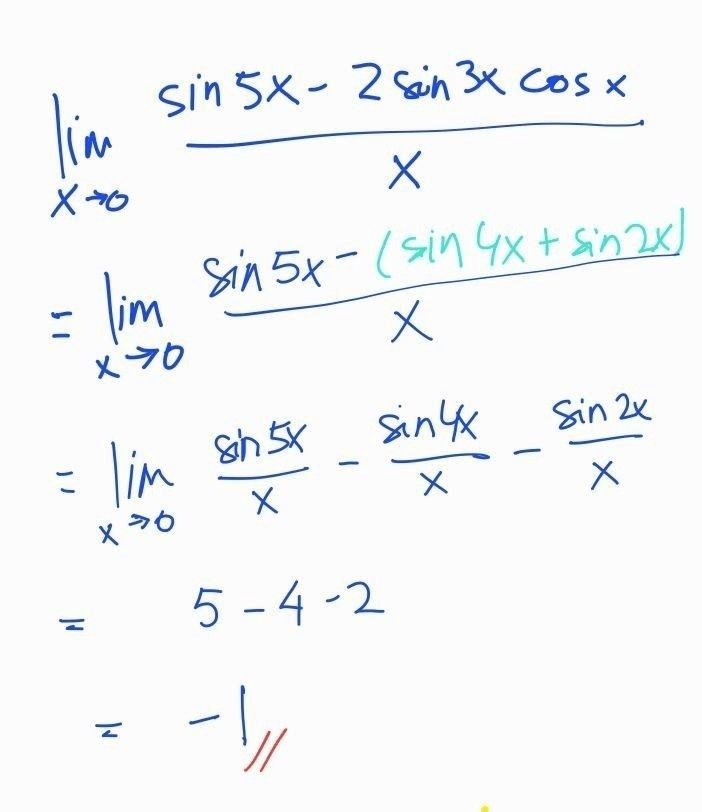 lim x→0 (sin 5x - 2 sin 3x cos x) / x
= lim x→0 (sin 5x - (sin 4x + sin 2x)) / x
= lim x→0 sin 5x / x - sin 4x / x - sin 2x / x
= 5 - 4 - 2
= -1 //